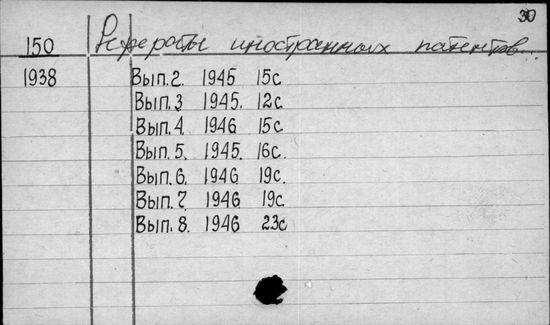 30
150 Рефераты иностранных патентов...
1938 Вып. 2. 1945 15с
Вып. 3 1945. 12с.
Вып. 4 1946 15с
Вып. 5. 1945. 16с.
Вып. 6. 1946 19с.
Вып. 7. 1946 19с.
Вып. 8. 1946 23с